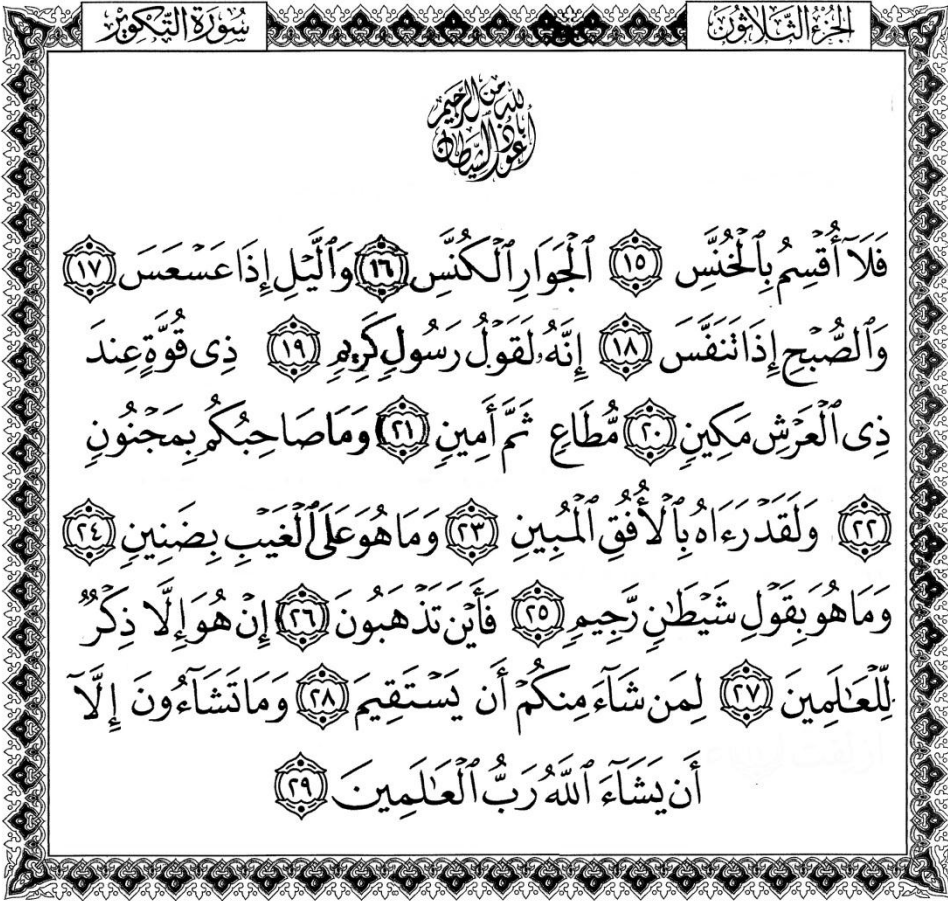 الجزء الثلاثون
سورة التكوير
أعوذ بالله من الشيطان الرجيم
فَلَآ أُقۡسِمُ بِٱلۡخُنَّسِ ١٥ ٱلۡجَوَارِ ٱلۡكُنَّسِ ١٦ وَٱلَّيۡلِ إِذَا عَسۡعَسَ ١٧
وَٱلصُّبۡحِ إِذَا تَنَفَّسَ ١٨ إِنَّهُۥ لَقَوۡلُ رَسُولٍ كَرِيمٍ ١٩ ذِى قُوَّةٍ عِندَ
ذِى ٱلۡعَرۡشِ مَكِينٍ ٢٠ مُّطَاعٍ ثَمَّ أَمِينٍ ٢١ وَمَا صَاحِبُكُم بِمَجۡنُونٍ
٢٢ وَلَقَدۡ رَءَاهُ بِٱلۡأُفُقِ ٱلۡمُبِينِ ٢٣ وَمَا هُوَ عَلَى ٱلۡغَيۡبِ بِضَنِينٍ ٢٤
وَمَا هُوَ بِقَوۡلِ شَيۡطَٰنٍ رَّجِيمٍ ٢٥ فَأَيۡنَ تَذۡهَبُونَ ٢٦ إِنۡ هُوَ إِلَّا ذِكۡرٌ
لِّلۡعَٰلَمِينَ ٢٧ لِمَن شَآءَ مِنكُمۡ أَن يَسۡتَقِيمَ ٢٨ وَمَا تَشَآءُونَ إِلَّآ
أَن يَشَآءَ ٱللَّهُ رَبُّ ٱلۡعَٰلَمِينَ ٢٩